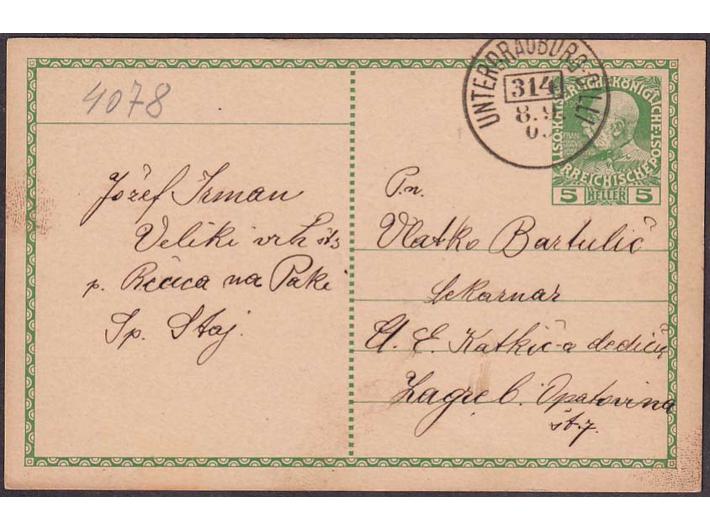 4078
UNTERDRAUBURG-CILLI
314
8. 9
0
KAISERLICH KÖNIGLICHE ÖSTERREICHISCHE POST
5 HELLER 5
Jožef Irman
Veliki vrh št 3
p. Rečica na Paki
Sp. Štaj.
P. n.
Vlatko Bartulić
Lekarnar
U. E. Katkić-a dedići
Zagreb. Opatovina
št. 7.